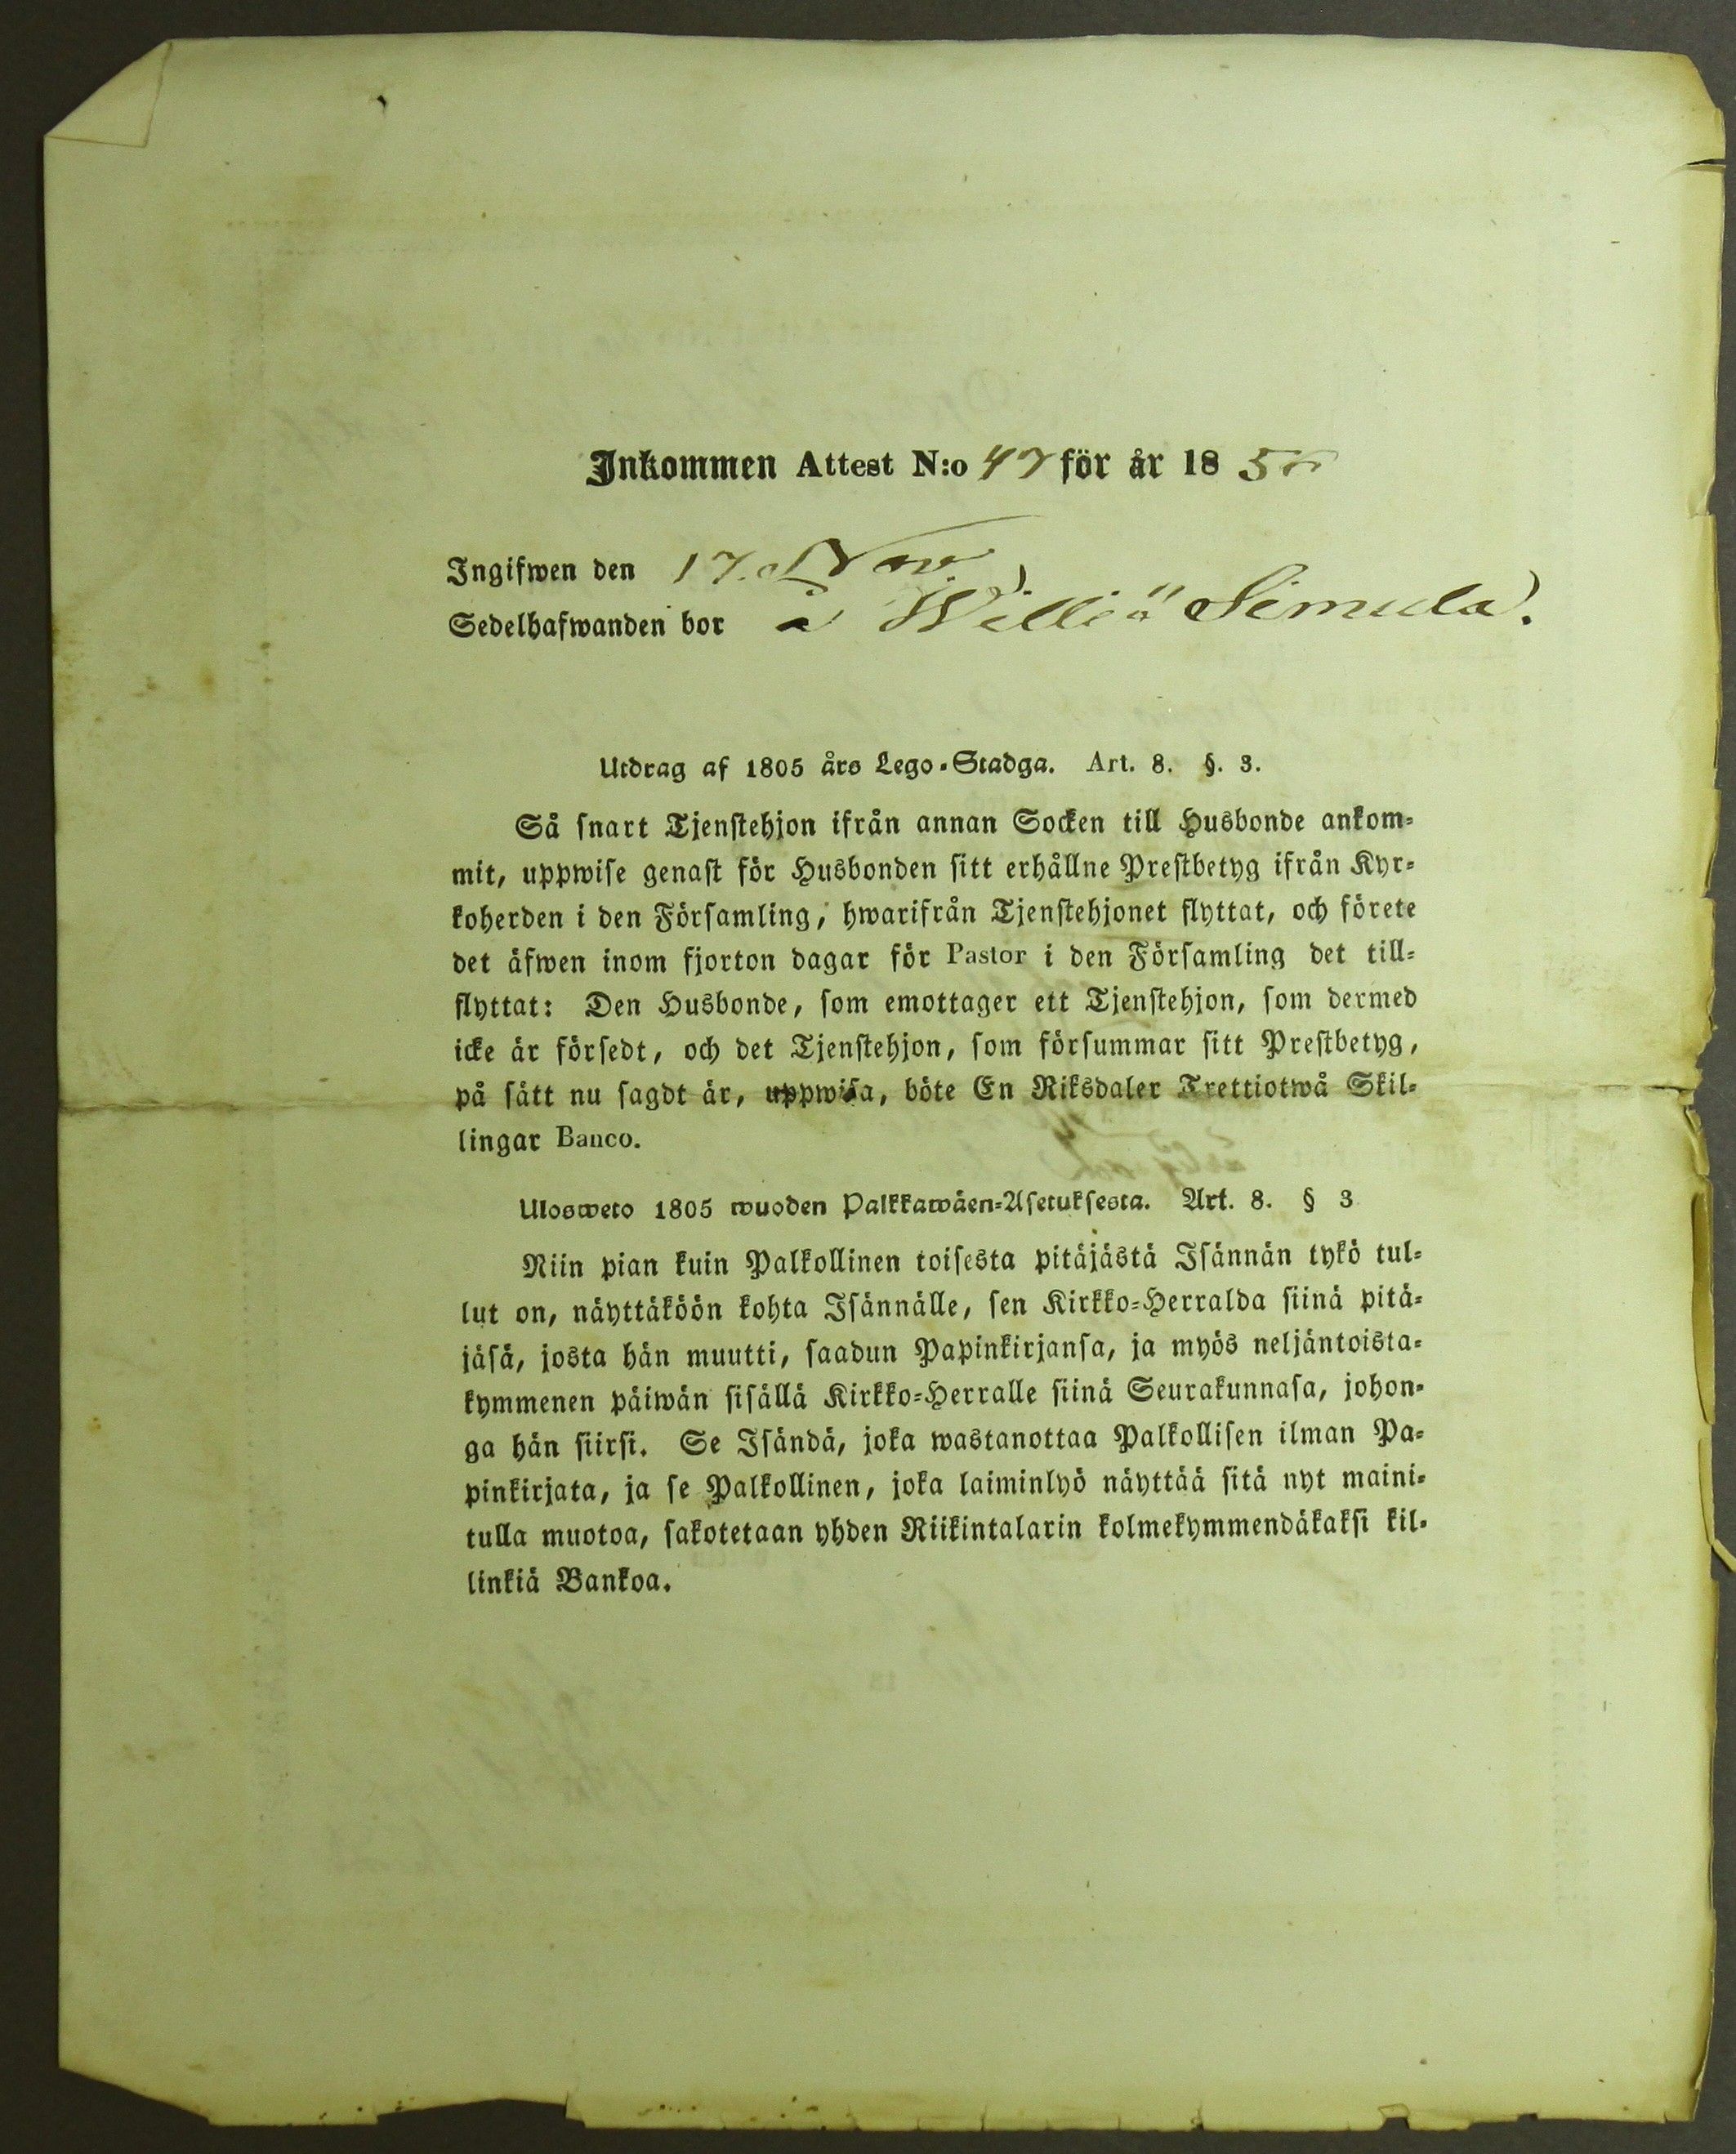 Inkommen Attest N:o 47 för år 185
Ingifwen den 17. Nov
Sedelhafwanden bor å Williä Simula.
Utdrag af 1805 års Lego-Stadga. Art. 8. §. 3.
Så snart Tjenstehjon ifrån annan Socken till Husbonde ankom-
mit, uppwise genast för Husbonden sitt erhållne Prestbetyg ifrån Kyr-
koherden i den Församling, hwarifrån Tjenstehjonet flyttat, och förete
det äfwen inom fjorton dagar för Pastor i den Församling det till-
flyttat: Den Husbonde, som emottager ett Tjenstehjon, som dermed
icke är försedt, och det Tjenstehjon, som försummar sitt Prestbetyg,
på sätt nu sagdt är, uppwisa, böte En Riksdaler Trettiotwå Skil-
lingar Banco.
Ulosweto 1805 wuoden Palkkawäen-Asetuksesta. Art. 8. § 3
Niin pian kuin Palkollinen toisesta pitäjästä Isännän tykö tul-
lut on, näyttäköön kohta Isännälle, sen Kirkko-Herralda siinä pitä-
jäsä, josta hän muutti, saadun Papinkirjansa, ja myös neljäntoista-
kymmenen päiwän sisällä Kirkko-Herralle siinä Seurakunnasa, johon-
ga hän siirsi. Se Isändä, joka wastanottaa Palkollisen ilman Pa-
pinkirjata, ja se Palkollinen, joka laiminlyö näyttää sitä nyt maini-
tulla muotoa, sakotetaan yhden Riikintalarin kolmekymmendäkaksi kil-
linkiä Bankoa.